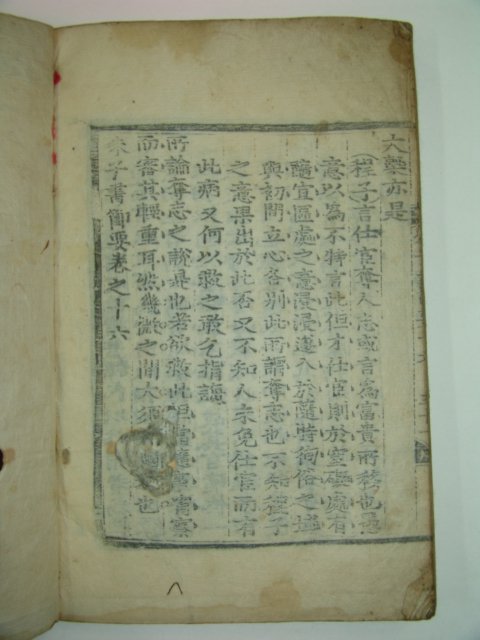 六藝亦是
程子言仕宦奪人志或言爲富貴所移也愚
意以爲不特言此但才仕宦則於窒礙處有
宜區處之意浸浸遂入於隨時徇俗之域
與初間立心各別此所謂奪志也不知程子
之意果出於此否又不知人未免仕宦而有
此病又何以救之敢乞指誨
所論奪志之說是也若欲救此但當隨事省察
而審其輕重耳然幾微之間大須也
朱子書節要卷之十六